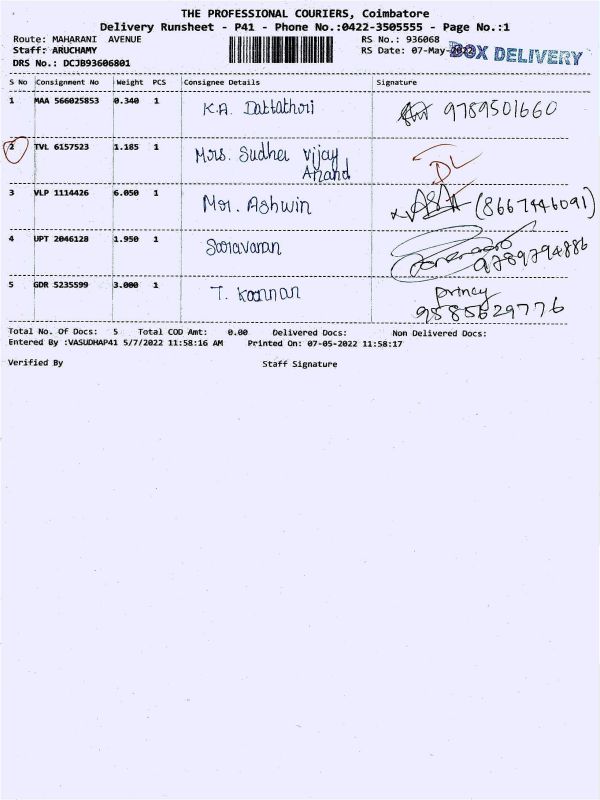 THE PROFESSIONAL COURIERS, Coimbatore
Delivery Runsheet - P41 - Phone No.:0422-3505555 - Page No.:1
Route: MAHARANI AVENUE RS No.: 936068
Staff: ARUCHAMY RS Date: 07-May-2022 BOX DELIVERY
DRS No.: DCJB93606801
S No Consignment No Weight PCS Consignee Details Signature
1 MAA 566025853 0.340 1 K.A. Dattathri 9789501660
2 TVL 6157523 1.185 1 Mrs. Sudha Vijay
Anand DL
3 VLP 1114426 6.050 1 Mr. Ashwin (8667446091)
4 UPT 2046128 1.950 1 Saravanan 9789794886
5 GDR 5235599 3.000 1 T. Kannan
9585629776
Total No. Of Docs: 5 Total COD Amt: 0.00 Delivered Docs: Non Delivered Docs:
Entered By :VASUDHAP41 5/7/2022 11:58:16 AM Printed On: 07-05-2022 11:58:17
Verified By Staff Signature